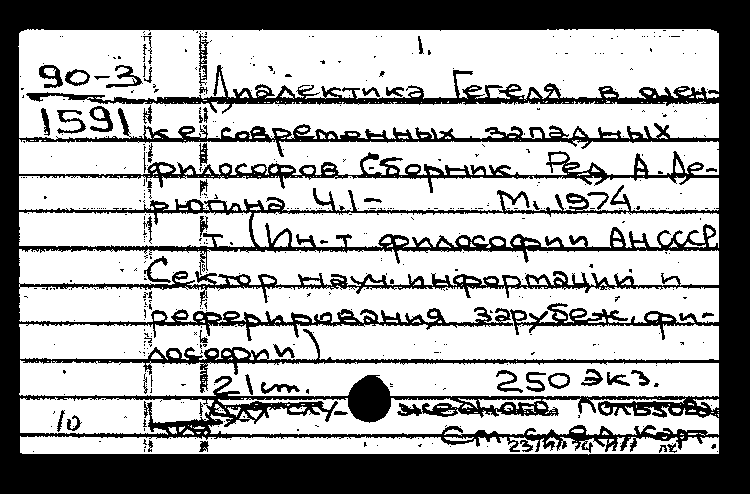 1.
90-3
1591
Диалектика Гегеля в оцен-
ке современных западных
философов. Сборник. Ред. А. Де-
рюгина Ч.1- М., 1974.
т. (Ин-т философии АН СССР.
Сектор науч. информации и
реферирования зарубеж. фи-
лософии).
21 cm. 250 экз.
Для слу- жебного пользова-
ния.
10 См. след. карт.